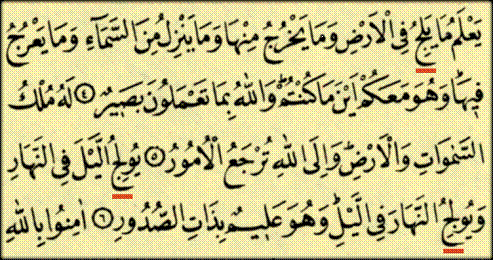 يَعْلَمُ مَا يَلِجُ فِى الْاَرْضِ وَمَا يَخْرُجُ مِنْهَا وَمَا يَنْزِلُ مِنَ السَّمَآءِ وَمَا يَعْرُجُ
فِيهَا وَهُوَ مَعَكُمْ اَيْنَ مَا كُنْتُمْ وَاللهُ بِمَا تَعْمَلُونَ بَصِيرٌ ﴿٤﴾ لَهُ مُلْكُ
السَّمٰوَاتِ وَالْاَرْضِ وَاِلَى اللهِ تُرْجَعُ الْاُمُورُ ﴿٥﴾ يُولِجُ الَّيْلَ فِى النَّهَارِ
وَيُولِجُ النَّهَارَ فِى الَّيْلِ وَهُوَ عَلِيمٌ بِذَاتِ الصُّدُورِ ﴿٦﴾ اٰمِنُوا بِاللهِ